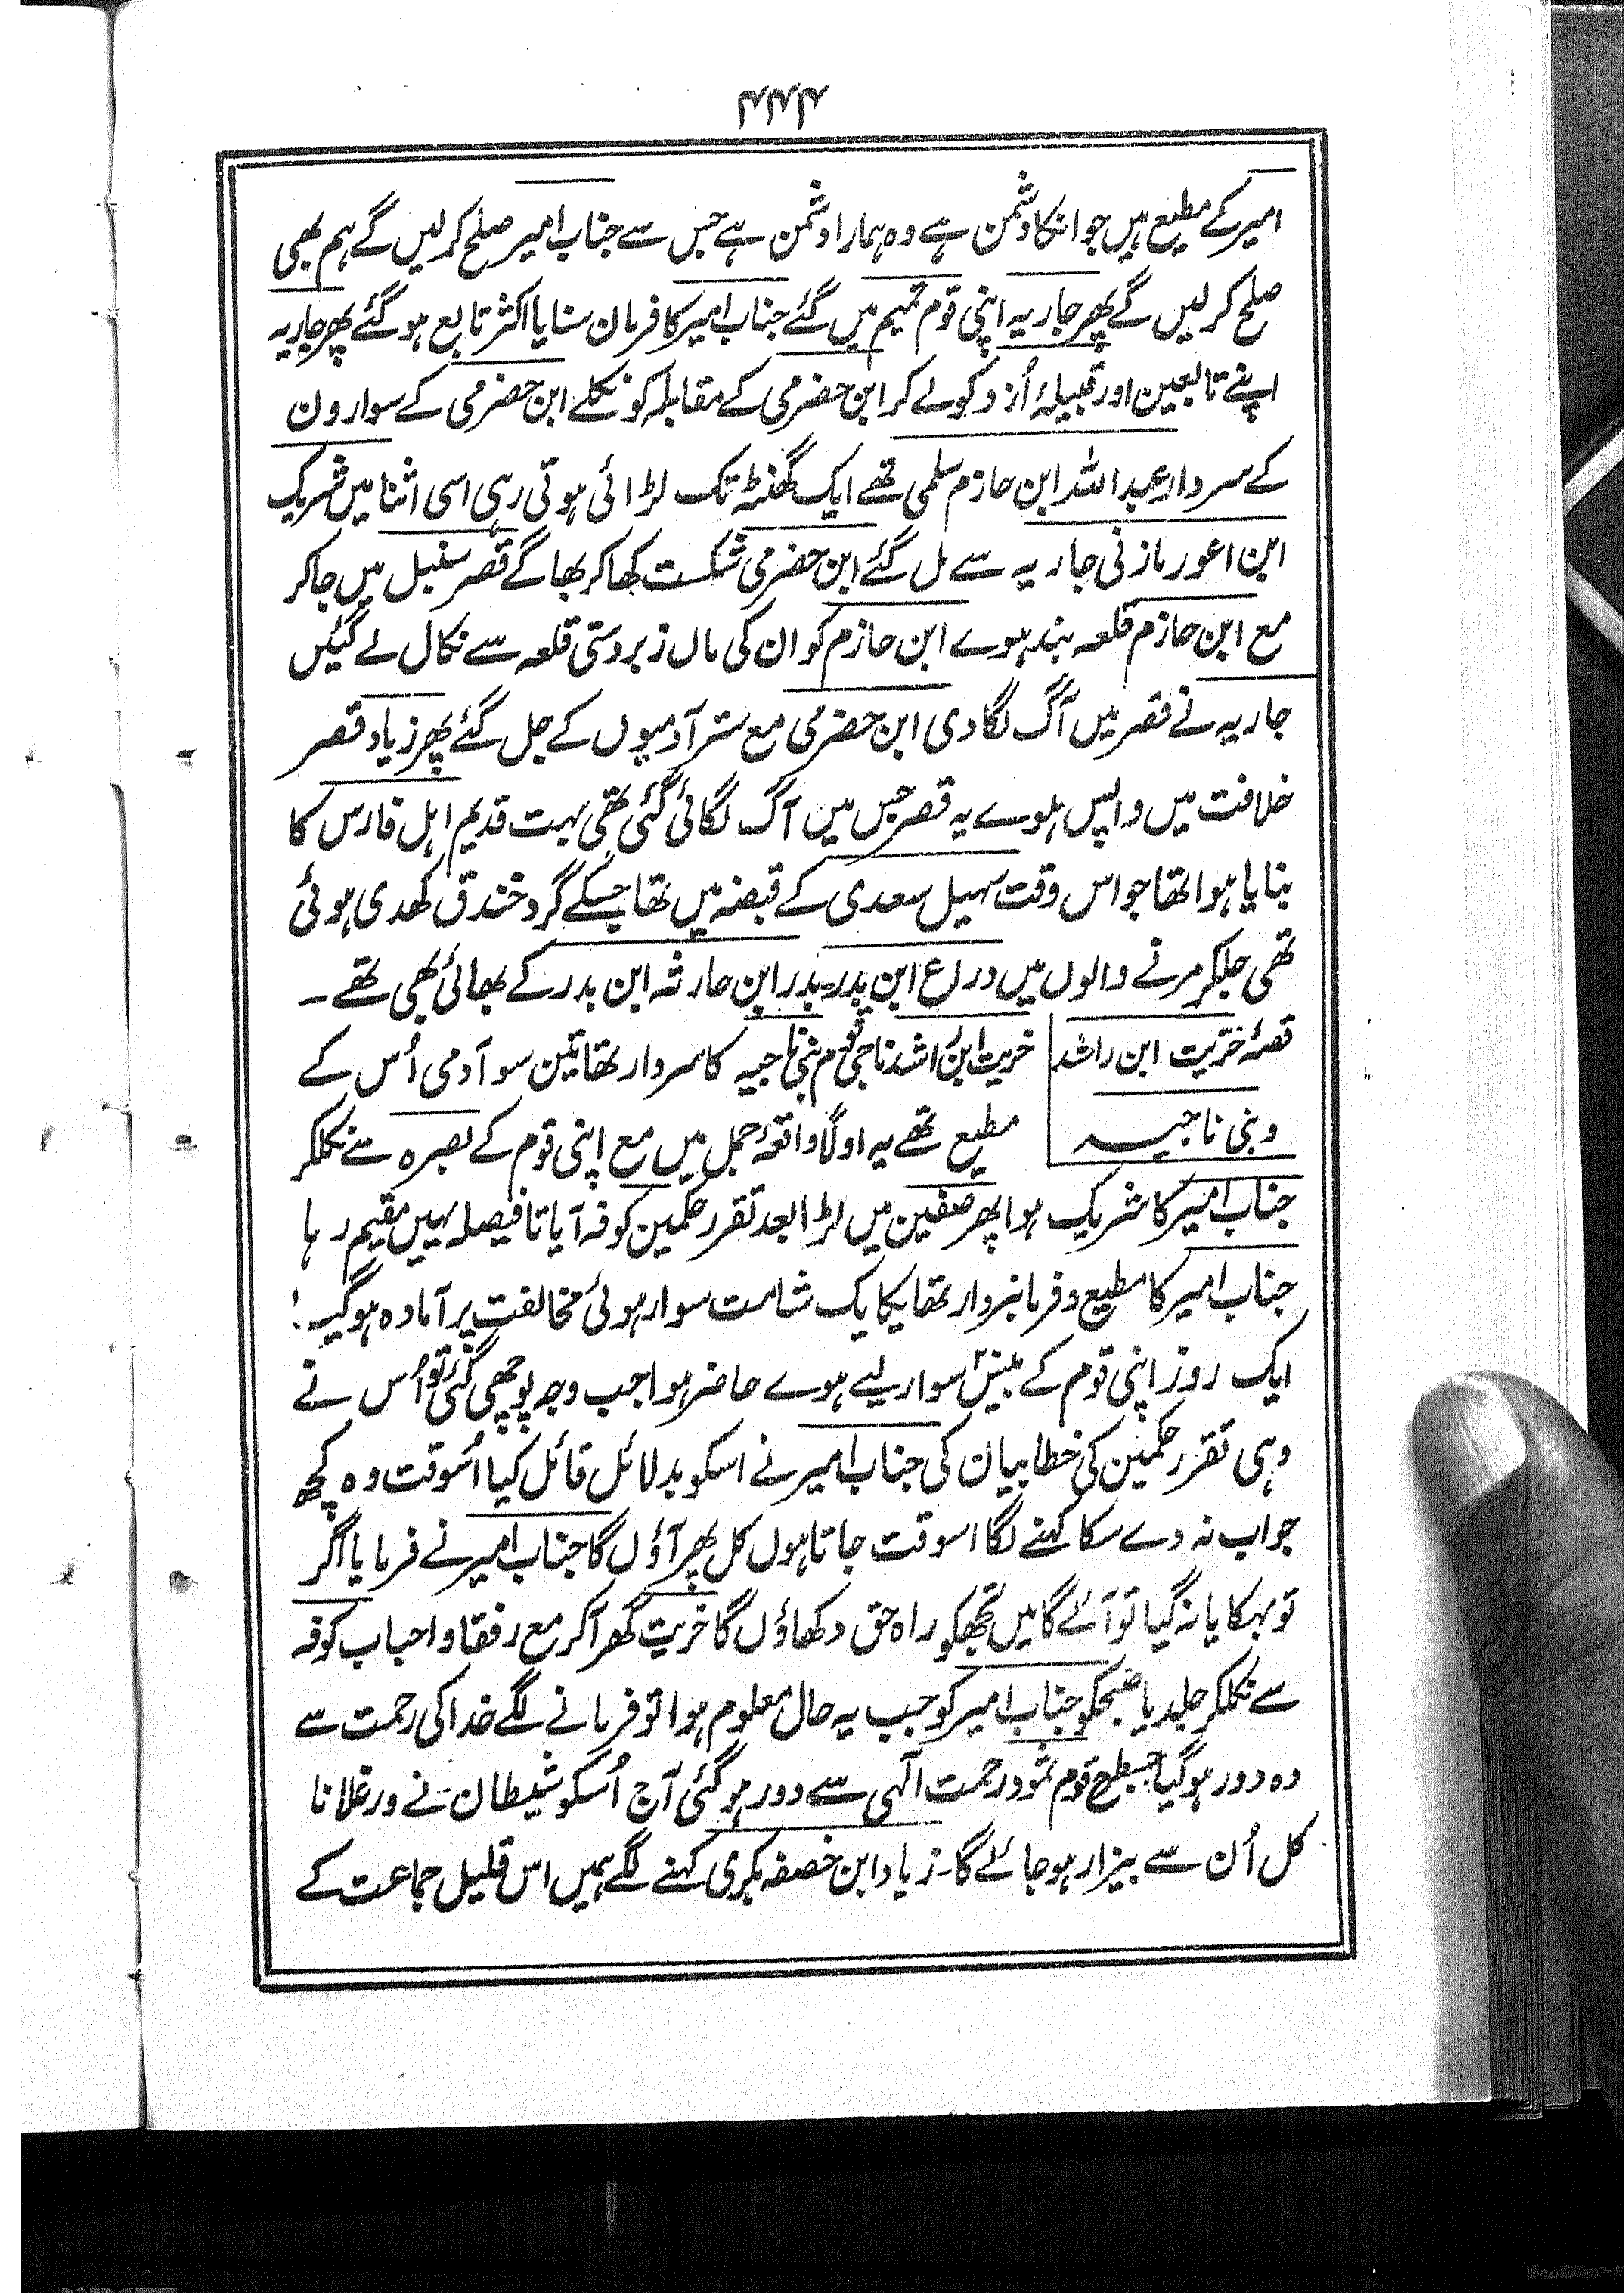 ۴۴۴
امیر کے مطیع ہیں جو انکا دشمن ہے وہ ہمارا دشمن ہے جس سے جناب امیر صلح کر لیں گے ہم بھی
صلح کر لیں گے پھر جاریہ اپنی قوم تمیم میں گئے جناب امیر کا فرمان سنایا اکثر تابع ہو گئے پھر جاریہ
اپنے تابعین اور قبیلۂ اُزد کو لے کر ابن حضرمی کے مقابلہ کو نکلے ابن حضرمی کے سوارون
کے سردار عبد اللہ ابن حازم سلمی تھے ایک گھنٹہ تک لڑائی ہوتی رہی اسی اثنا میں شریک
ابن اعور مازنی جاریہ سے مل گئے ابن حضرمی شکست کھا کر بھاگے قصر سنبل میں جا کر
مع ابن حازم قلعہ بند ہوے ابن حازم کو ان کی ماں زبردستی قلعہ سے نکال لے گئیں
جاریہ نے قصر میں آگ لگا دی ابن حضرمی مع ستر آدمیوں کے جل گئے پھر زیاد قصر
خلافت میں واپس ہوے یہ قصر جس میں آگ لگائی گئی تھی بہت قدیم اہل فارس کا
بنایا ہوا تھا جو اس وقت سہیل سعدی کے قبضہ میں تھا جسکے گرد خندق کھدی ہوئی
تھی جلکر مرنے والوں میں دراع ابن بدر۔ بدر ابن حارثہ ابن بدر کے بھائی بھی تھے ۔
قصۂ خرّیت ابن راشد خریت ابن راشد ناجی قوم بنی ناجیہ کا سردار تھا تین سو آدمی اُس کے
و بنی ناجیہ مطیع تھے یہ اولًا واقعۂ جمل میں مع اپنی قوم کے بصرہ سے نکلکر
جناب امیر کا شریک ہوا پھر صفین میں لڑا بعد تقرر حکمین کوفہ آیا تا فیصلہ یہیں مقیم رہا
جناب امیر کا مطیع و فرمانبردار تھا یکایک شامت سوار ہوئی مخالفت پر آمادہ ہو گیا
ایک روز اپنی قوم کے تیس سوار لیے ہوے حاضر ہوا جب وجہ پوچھی گئی تو اُس نے
وہی تقرر حکمین کی خطا بیان کی جناب امیر نے اسکو بدلائل قائل کیا اُسوقت وہ کچھ
جواب نہ دے سکا کہنے لگا اسوقت جاتا ہوں کل پھر آؤں گا جناب امیر نے فرمایا اگر
تو بہکایا نہ گیا تو آئے گا میں تجھکو راہ حق دکھاؤں گا خریت گھر آکر مع رفقا و احباب کوفہ
سے نکلکر چلدیا صبحکو جناب امیر کو جب یہ حال معلوم ہوا تو فرمانے لگے خدا کی رحمت سے
وہ دور ہو گیا جسطرح قوم ثمود رحمت الٰہی سے دور ہو گئی آج اُسکو شیطان نے ورغلانا
کل اُن سے بیزار ہو جائے گا۔ زیاد ابن خصفہ بکری کہنے لگے ہمیں اس قلیل جماعت کے